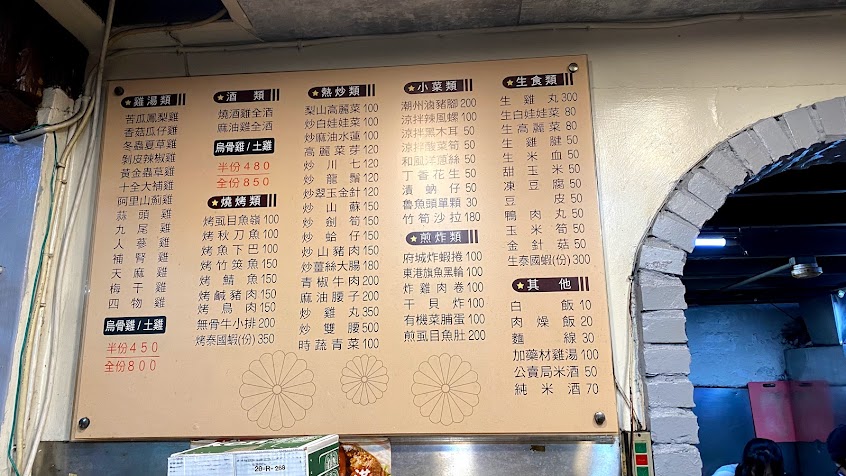 ★雞湯類
苦瓜鳳梨雞
香菇瓜仔雞
冬蟲夏草雞
剝皮辣椒雞
黃金蟲草雞
十全大補雞
阿里山薊雞
蒜頭雞
九尾雞
人蔘雞
補腎雞
天麻雞
梅干雞
四物雞
烏骨雞/土雞
半份450
全份800
★酒類
燒酒雞全酒
麻油雞全酒
烏骨雞/土雞
半份480
全份850
★燒烤類
烤虱目魚嶺100
烤秋刀魚100
烤魚下巴100
烤竹筴魚150
烤鯖魚150
烤鹹豬肉150
烤鳥肉150
無骨牛小排200
烤泰國蝦(份)350
★熱炒類
梨山高麗菜100
炒白娃娃菜100
炒麻油水蓮100
高麗菜芽120
炒川七120
炒龍鬚120
炒翠玉金針120
炒山蘇150
炒劍筍150
炒蛤仔150
炒山豬肉150
炒薑絲大腸180
青椒牛肉200
麻油腰子200
炒雞丸350
炒雙腰500
時蔬青菜100
★小菜類
潮州滷豬腳200
涼拌辣風螺100
涼拌黑木耳50
涼拌酸菜筍50
和風洋蔥絲50
丁香花生50
漬蚋仔50
魯魚頭單顆30
竹筍沙拉180
★煎炸類
府城炸蝦捲100
東港旗魚黑輪100
炸雞肉卷100
干貝炸100
有機菜脯蛋100
煎虱目魚肚200
★生食類
生雞丸300
生白娃娃菜80
生高麗菜80
生雞腱50
生米血50
甜玉米50
凍豆腐50
豆皮50
鴨肉丸50
玉米筍50
金針菇50
生泰國蝦(份)300
★其他
白飯10
肉燥飯20
麵線30
加藥材雞湯100
公賣局米酒50
純米酒70
20-R-268